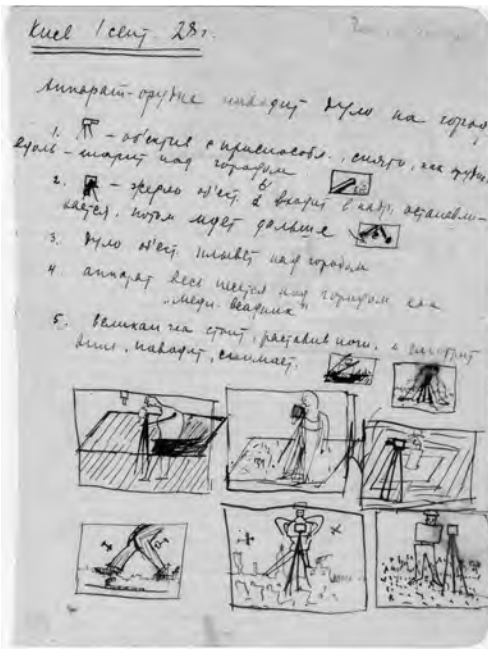 Киев 1 сент. 28 г.
Аппарат-орудие наводит дуло на город
1. – объектив с приспособл., снято, как орудие,
вдоль – шарит над городом
2. – жерло об'ект. в входит в кадр, останавли-
вается, потом идет дальше
3. Дуло об'ект. плывет над городом
4. аппарат весь несется над городом как
"медн. всадник"
5. Великан стоит, расставив ноги, и смотрит
вниз, наводит, снимает.